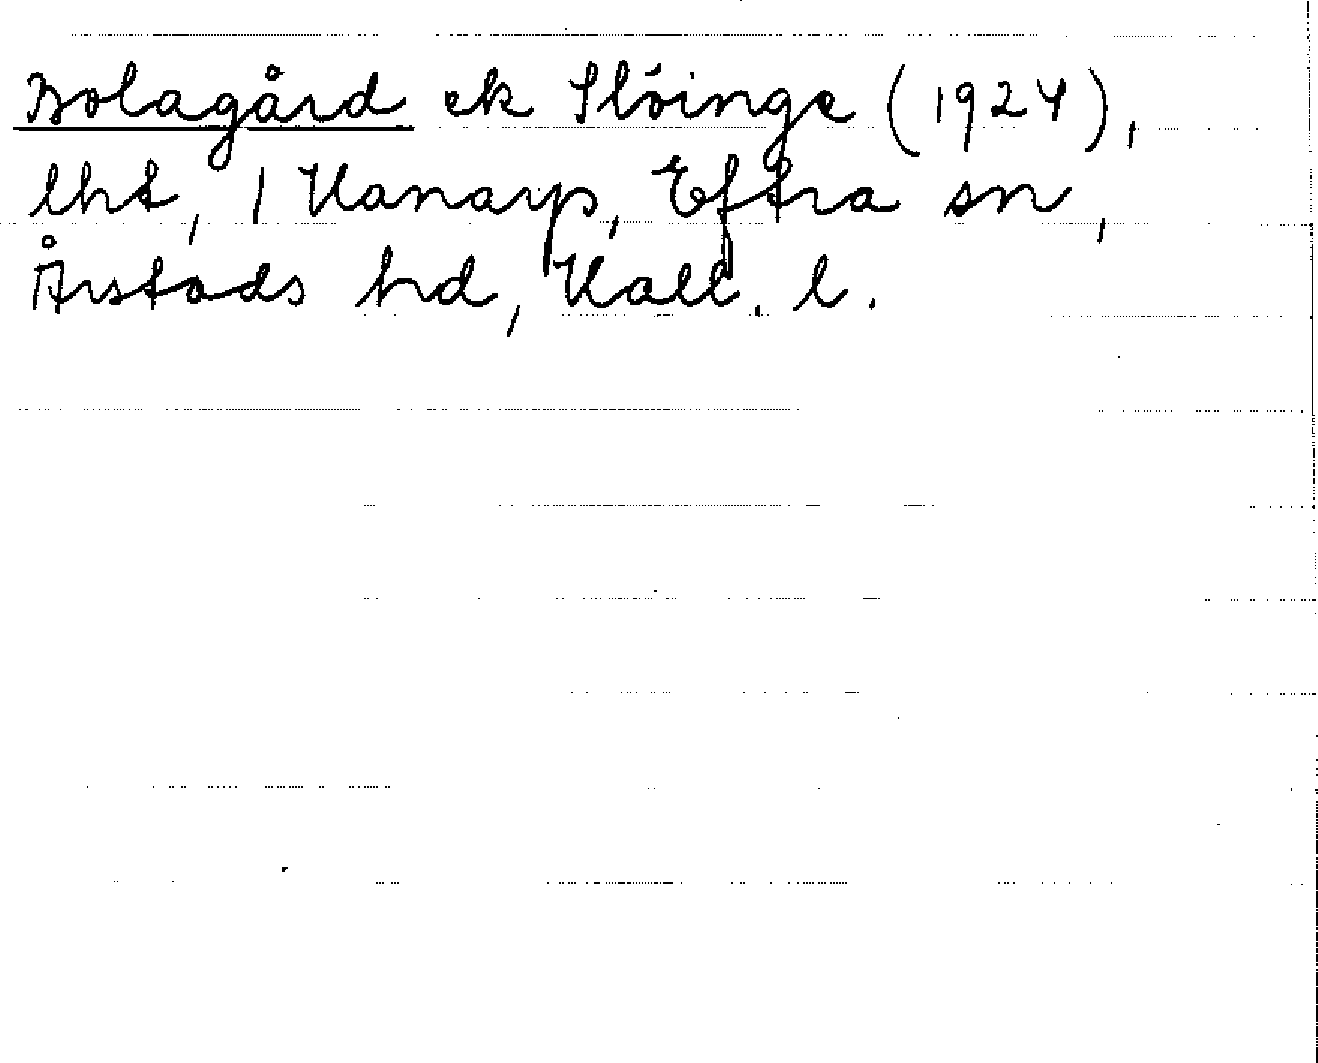 Bolagård ek Slöinge (1924),
lht, 1 Vanarp, Eftra sn,
Årstads hd, Hall. l.